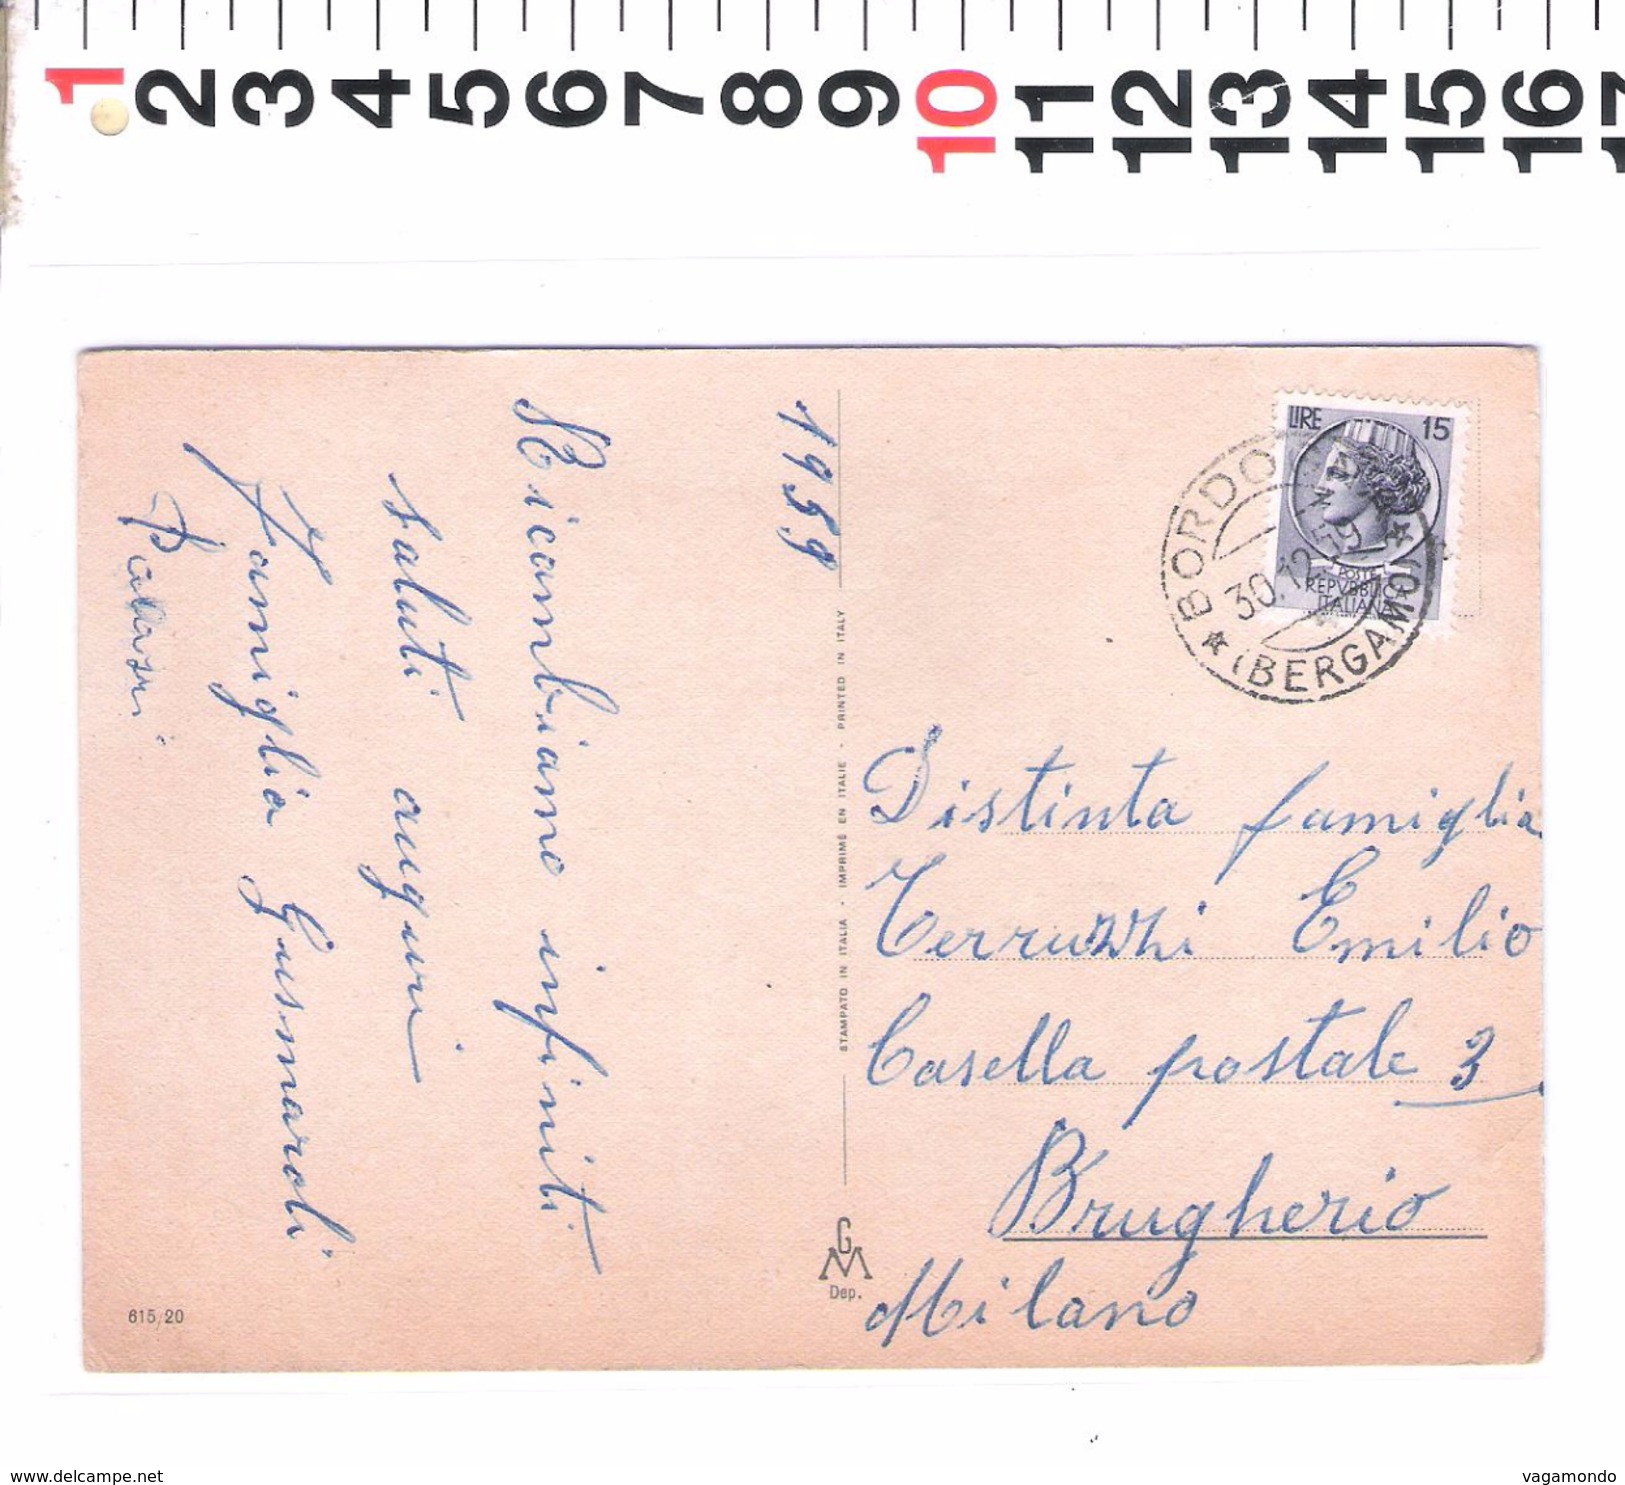 1 2 3 4 5 6 7 8 9 10 11 12 13 14 15 16 17
1959
Ricambiamo infiniti
saluti auguri
famiglia Gusmaroli
LIRE 15
POSTE
REPVBBLICA
ITALIANA
BORDO
30.12.59
(BERGAMO)
STAMPATO IN ITALIA - IMPRIMÉ EN ITALIE - PRINTED IN ITALY
Distinta famiglia
Terruzzi Emilio
Casella postale 3
Brugherio
Milano
GM
Dep.
615/20
www.delcampe.net
vagamondo